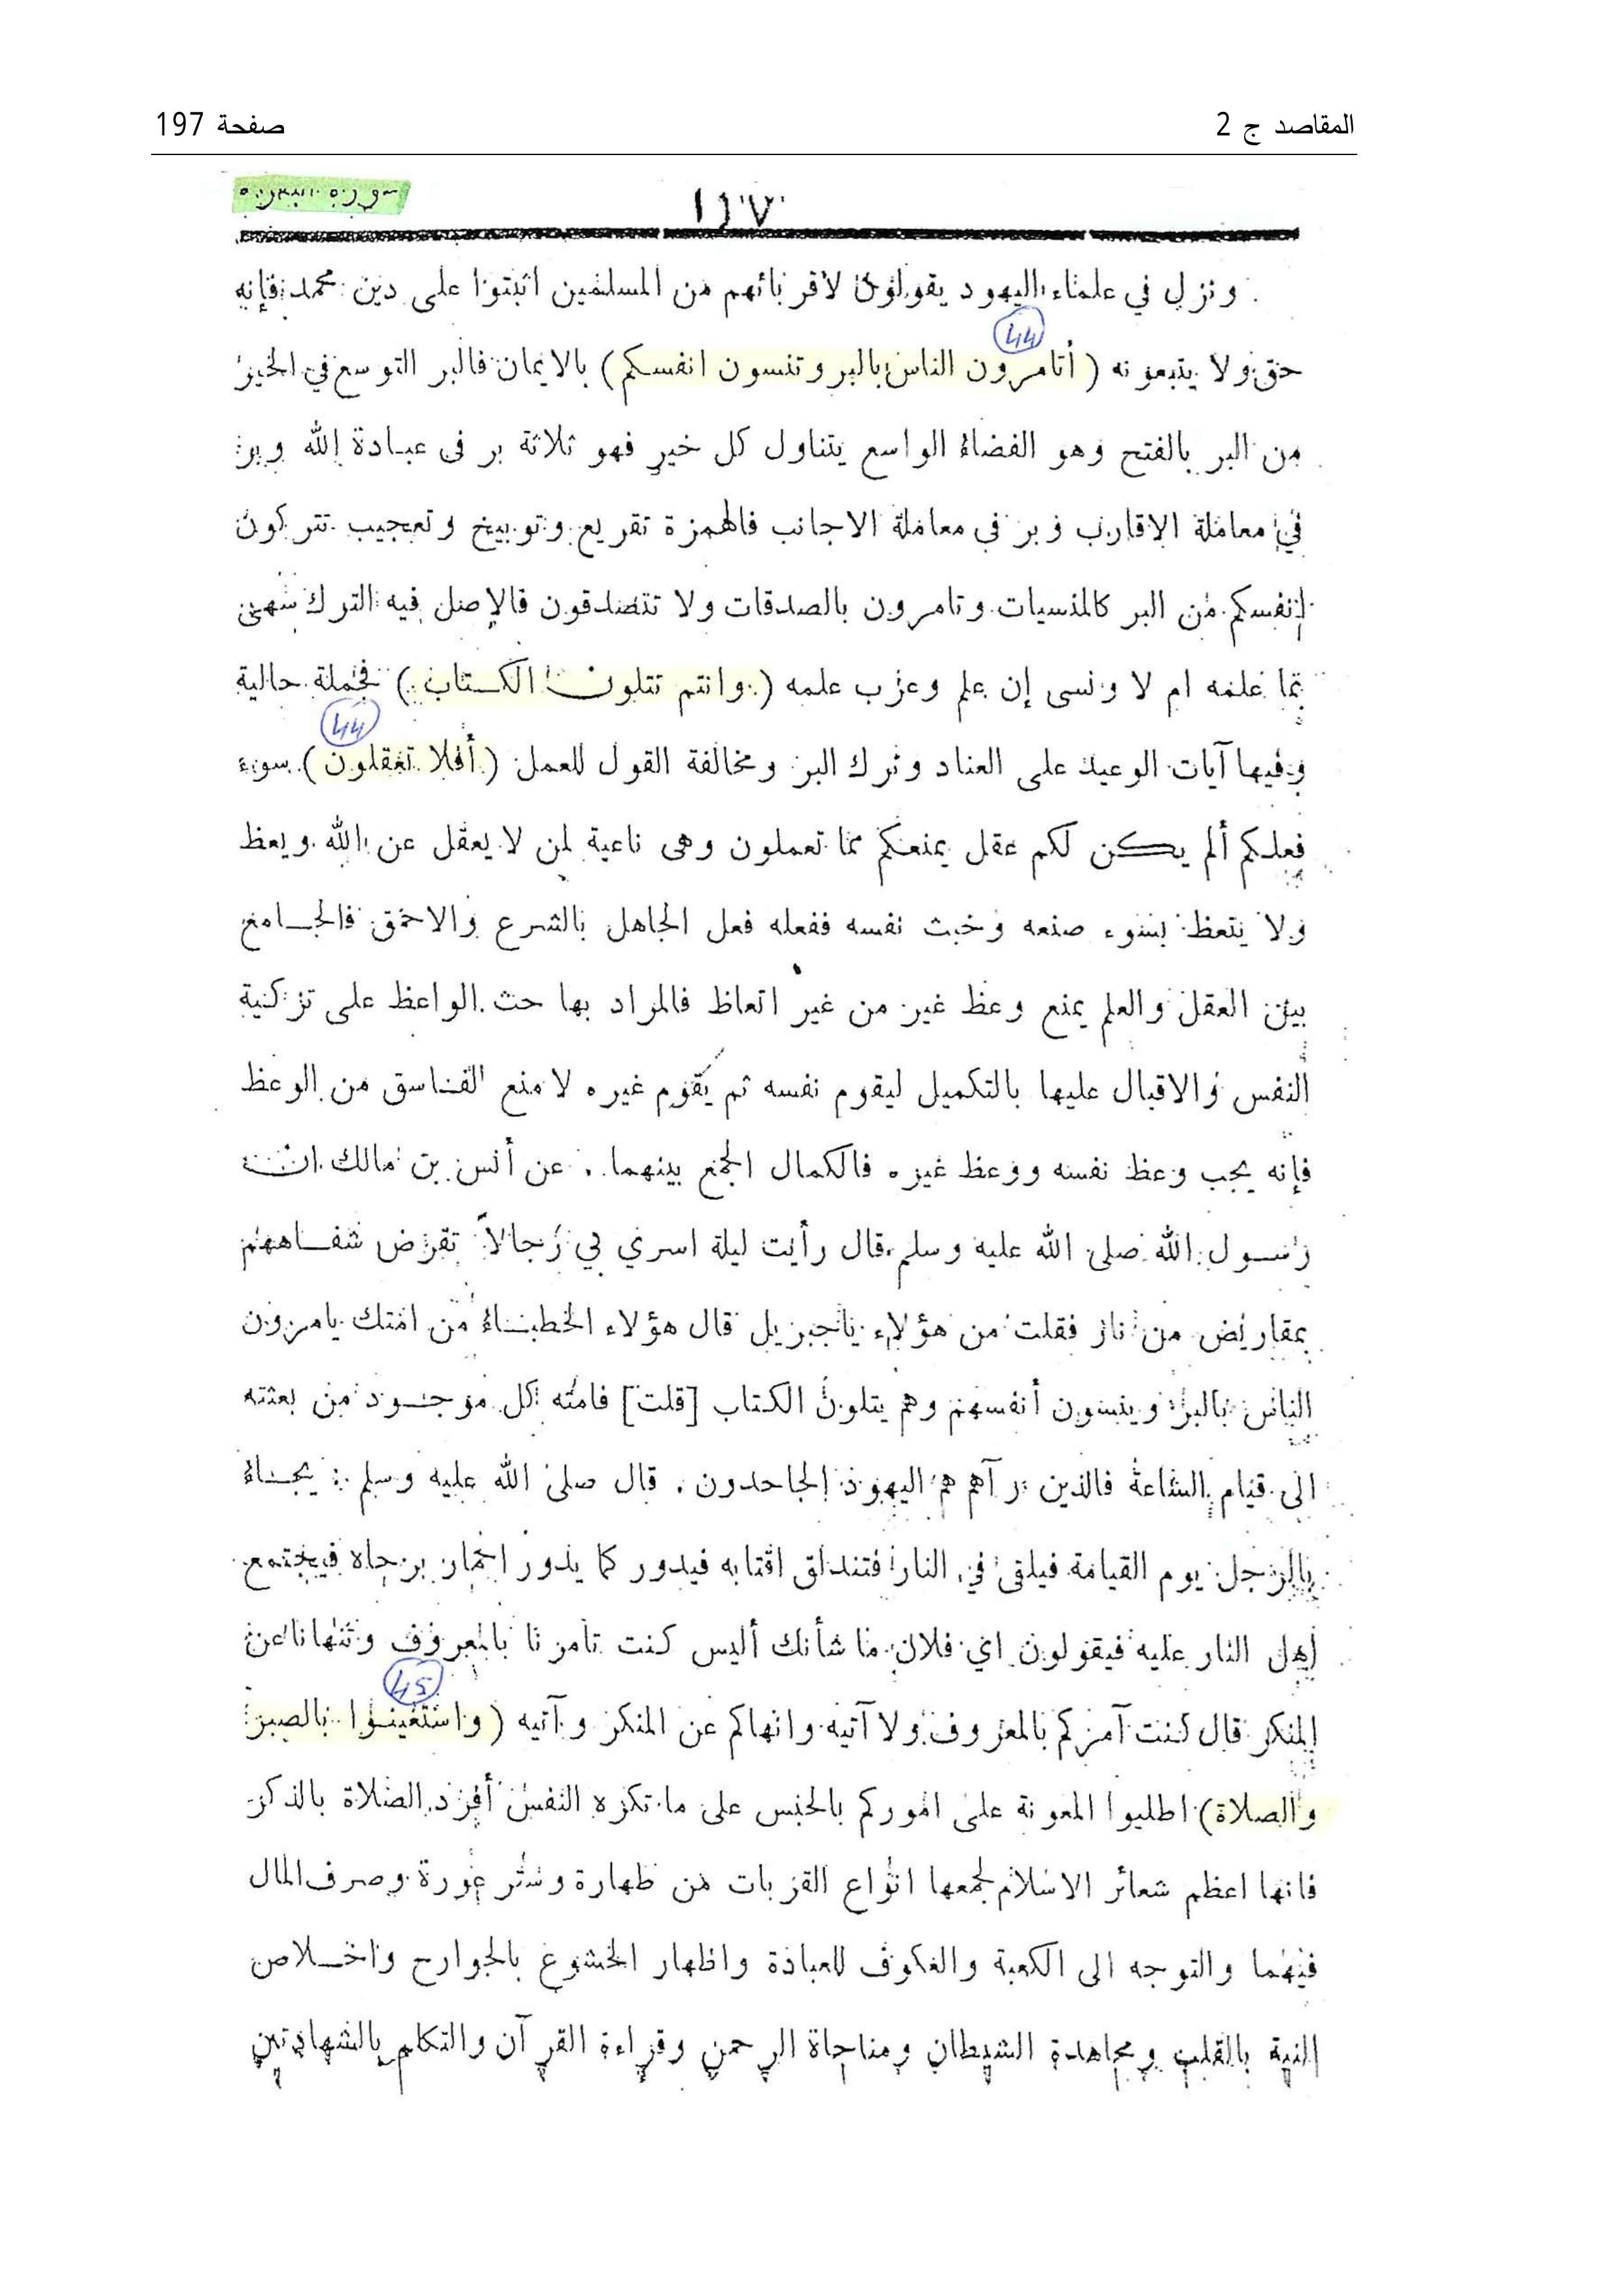 المقاصد ج 2
صفحة 197
سورة البقرة
١٩٧
ونزل في علماء اليهود يقولون لأقربائهم من المسلمين اثبتوا على دين محمد فإنه
44
حق ولا يتبعونه ( أتامرون الناس بالبر وتنسون انفسكم ) بالايمان فالبر التوسع في الخير
من البر بالفتح وهو الفضاء الواسع يتناول كل خير فهو ثلاثة بر فى عبادة الله وبر
في معاملة الاقارب وبر في معاملة الاجانب فالهمزة تقريع وتوبيخ وتعجيب تتركون
انفسكم من البر كالمنسيات وتامرون بالصدقات ولا تتصدقون فالاصل فيه الترك
علمه ام لا ونسى إن علم وعزب علمه ( وانتم تتلون الكتاب ) فجملة حالية
44
وفيها آيات الوعيد على العناد وترك البر ومخالفة القول للعمل ( أفلا تعقلون ) سوء
فعلكم ألم يكن لكم عقل يمنعكم مما تعملون وهى ناعية لمن لا يعقل عن الله ويعظ
ولا يتعظ بسوء صنعه وخبث نفسه ففعله فعل الجاهل بالشرع والاحمق فالجامع
بين العقل والعلم يمنع وعظ غير من غير اتعاظ فالمراد بها حث الواعظ على تزكية
النفس والاقبال عليها بالتكميل ليقوم نفسه ثم يُقوم غيره لا منع الفاسق من الوعظ
فإنه يجب وعظ نفسه ووعظ غيره فالكمال الجمع بينهما . عن أنس بن مالك ان
رسول الله صلى الله عليه وسلم قال رأيت ليلة اسري بي رجالاً تقرض شفاههم
بمقاريض من نار فقلت من هؤلاء ياجبريل قال هؤلاء الخطباء من امتك يامرون
الناس بالبر وينسون أنفسهم وهم يتلون الكتاب [قلت] فامته كل موجود من بعثته
الى قيام الساعة فالذين رآهم هم اليهود الجاحدون . قال صلى الله عليه وسلم : يجاء
بالرجل يوم القيامة فيلقى في النار فتندلق اقتابه فيدور كما يدور الحمار برحاه فيجتمع
اهل النار عليه فيقولون اي فلان ما شأنك أليس كنت تامرنا بالمعروف وتنهانا عن
45
المنكر قال كنت آمركم بالمعروف ولا آتيه وانهاكم عن المنكر وآتيه ( واستعينوا بالصبر
والصلاة ) اطلبوا المعونة على اموركم بالحبس على ما تكره النفس أفرد الصلاة بالذكر
فانها اعظم شعائر الاسلام لجمعها انواع القربات من طهارة وستر عورة وصرف المال
فيهما والتوجه الى الكعبة والعكوف للعبادة واظهار الخشوع بالجوارح واخلاص
النية بالقلب ومجاهدة الشيطان ومناجاة الرحمن وقراءة القرآن والتكلم بالشهادتين